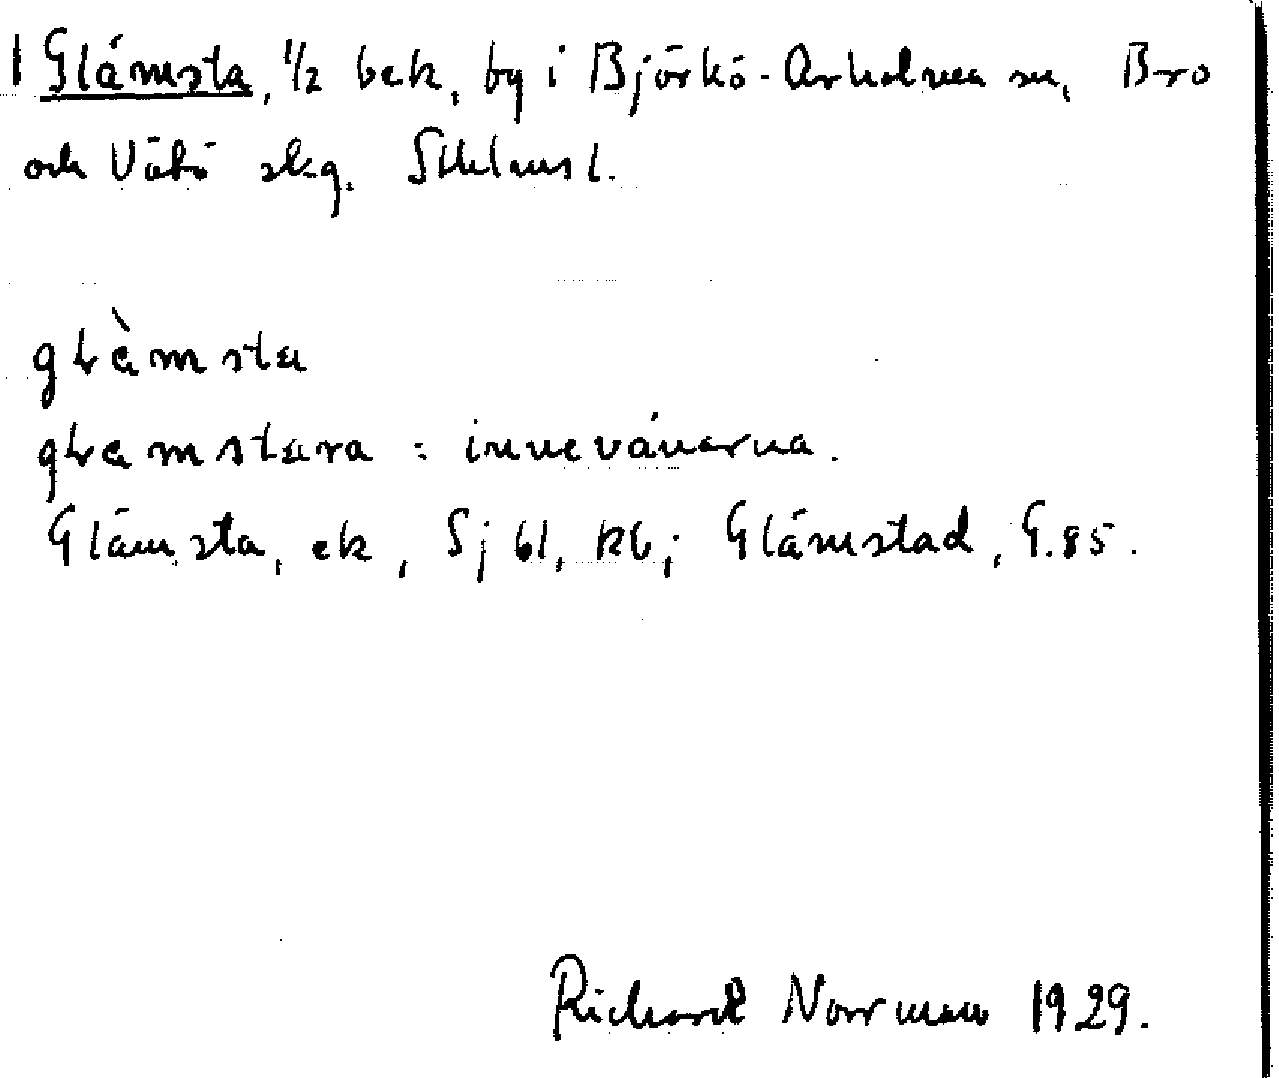 1 Glámsta, 1/2 bek, by i Björkö-Arholma sn, Bro
och Vätö skg. Sthlms l.
gLàmsta
gLamstara = innevånarna.
Glämsta, ek, Sjbl, kb; Glämstad, G.85.
Richard Norrman 1929.